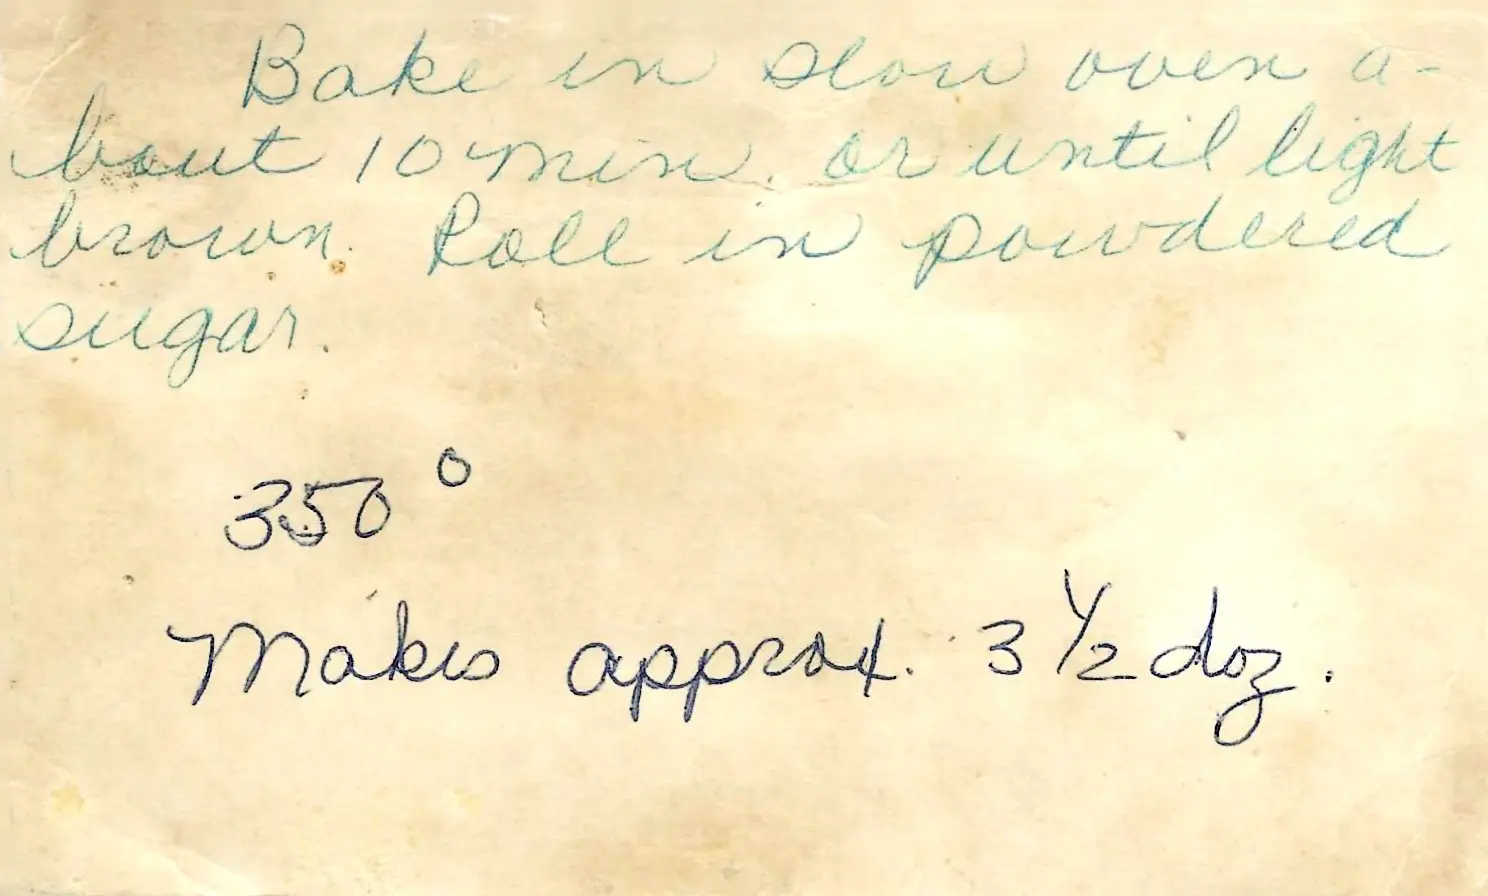 Bake in slow oven a-
bout 10 min. or until light
brown. Roll in powdered
sugar.
350°
Makes approx. 3 1/2 doz.